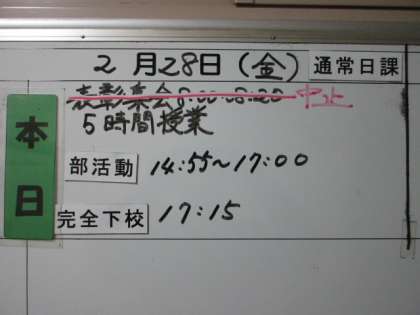 2月28日(金) 通常日課
表彰集会8:00-08:20 中止
本日
5時間授業
部活動 14:55~17:00
完全下校 17:15